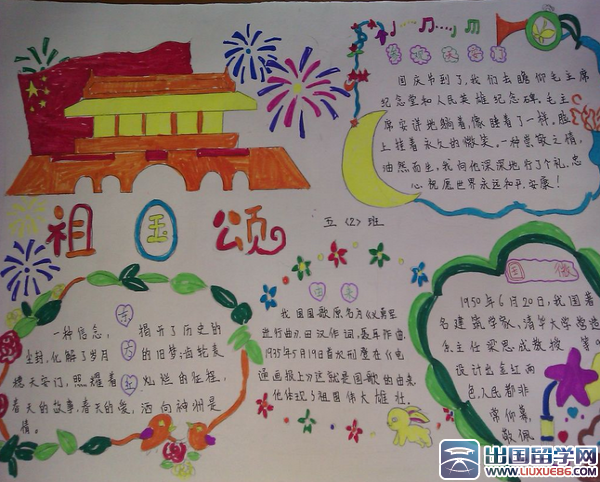 祖国颂
五〈2〉班
国庆节到了,我们去瞻仰毛主席
纪念堂和人民英雄纪念碑。毛主
席安详地躺着,像睡着了一样,脸
上挂着永久的微笑,一种崇敬之情,
油然而生,我向他深深地行了个礼,忠
心祝愿世界永远和平,安康!
一种信念,
揭开了历史的
尘封,化解了岁月
的旧梦;齿轮麦
穗天安门,照耀着
灿烂的征程,
春天的故事,春天的爱,洒向神州是
情。
由来
我国国歌原名为《义勇军
进行曲》,田汉作词,聂耳作曲
1935年5月19日首次刊登在《电
通画报上》,这就是国歌的由来
他体现了祖国伟大雄壮.
国徽
1950年6月20日,我国著
名建筑学家、清华大学营造
系主任梁思成教授
设计出金红两
色,人民都非
常仰慕,
敬佩
出国留学网
www.LIUXUE86.COM